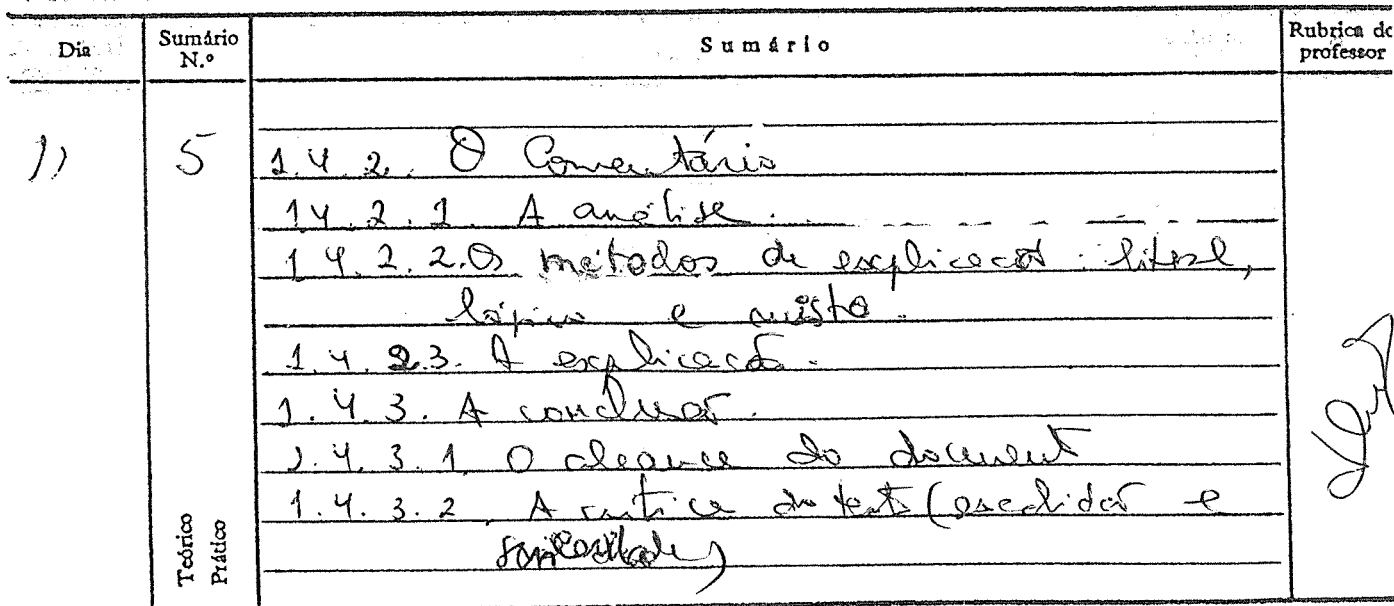 Dia
Sumário N.º
Sumário
Rubrica do professor
11
5
1.4.2. O Comentário
1.4.2.1. A análise.
1.4.2.2. Os métodos de explicação: literal,
lógico e misto.
1.4.2.3. A explicação.
1.4.3. A conclusão.
1.4.3.1 O alcance do documento
1.4.3.2. A crítica do texto (exactidão e
sinceridade)
Teórico
Prático